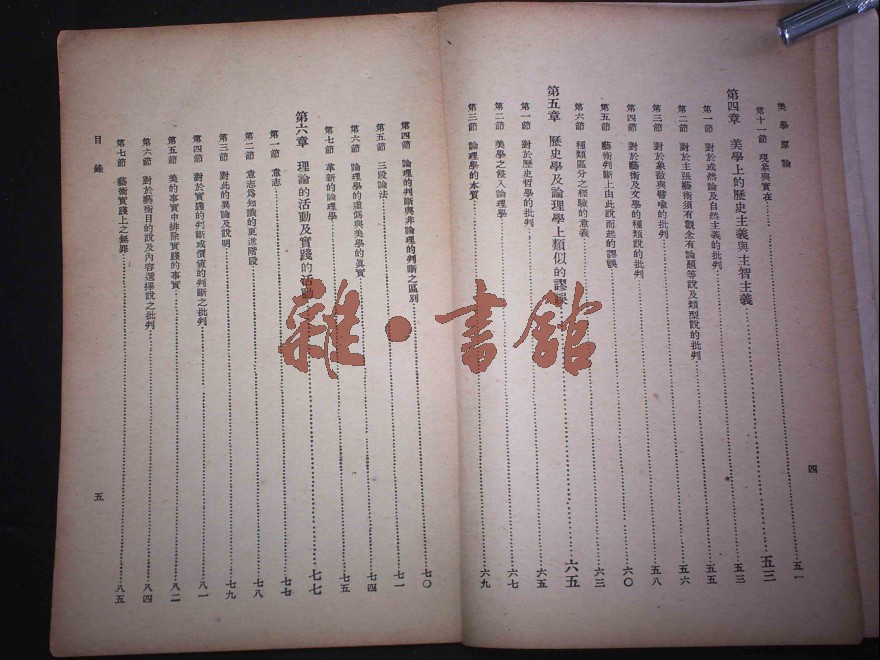 美學原論
第十一節 現象與實在……五一
第四章 美學上的歷史主義與主智主義……五三
第一節 對於或然論及自然主義的批判……五三
第二節 對於主張藝術須有觀念有論題等說及類型說的批判……五五
第三節 對於象徵與譬喻的批判……五六
第四節 對於藝術及文學的種類說的批判……五八
第五節 藝術判斷上由此說而起的謬誤……六〇
第六節 種類區分之經驗的意義……六三
第五章 歷史學及論理學上類似的謬誤……六五
第一節 對於歷史哲學的批判……六五
第二節 美學之侵入論理學……六七
第三節 論理學的本質……六九
四
第四節 論理的判斷與非論理的判斷之區別……七〇
第五節 三段論法……七一
第六節 論理學的虛偽與美學的真實……七四
第七節 革新的論理學……七五
第六章 理論的活動及實踐的活動……七七
第一節 意志……七七
第二節 意志為知識的更進階段……七八
第三節 對此的異論及說明……七九
第四節 對於實踐的判斷或價值的判斷之批判……八一
第五節 美的事實中排除實踐的事實……八二
第六節 對於藝術目的說及內容選擇說之批判……八四
第七節 藝術實踐上之無罪……八五
目錄
五
雜·書館